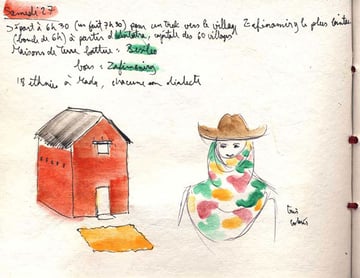 Samedi 27
Départ à 6h30 (en fait 7h30) pour un trek vers le village Zafimaniry le plus
(boucle de 6h) à partir d'Antoetra, capitale des 60 villages
Maisons de terre battue = Betsileo
bois = Zafimaniry
18 ethnies à Mada, chacune son dialecte
très
colorés